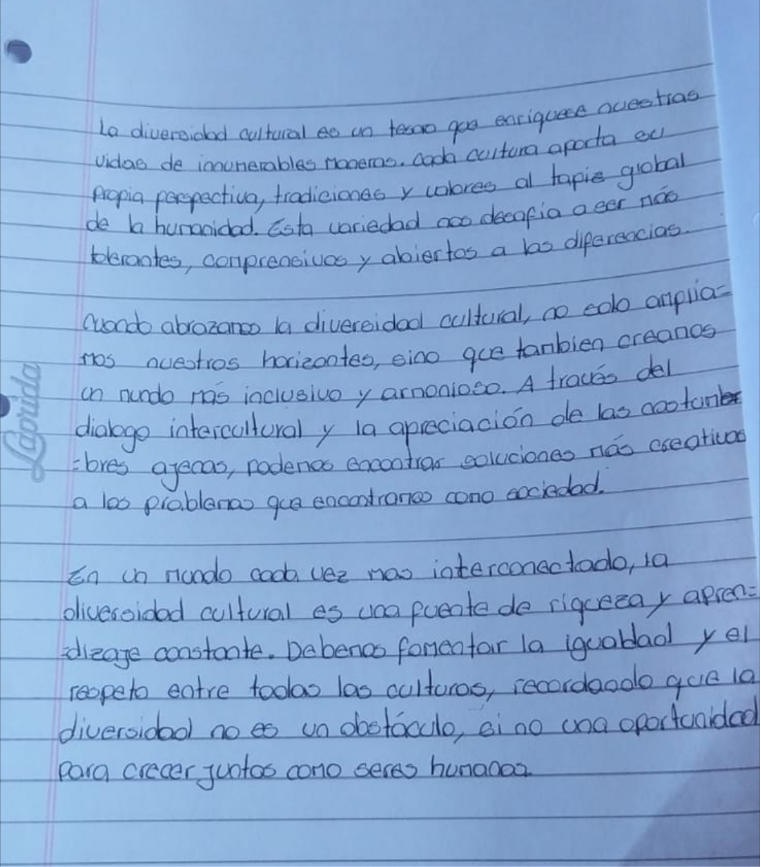 La diversidad cultural es un tesoro que enriquece nuestras
vidas de innumerables maneras. Cada cultura aporta su
propia perspectiva, tradiciones y valores al tapiz global
de la humanidad. Esta variedad nos desafia a ser más
tolerantes, comprensivos y abiertos a las diferencias.
Cuando abrazamos la diversidad cultural, no solo amplia=
mos nuestros horizontes, sino que tambien creamos
un mundo más inclusivo y armonioso. A través del
dialogo intercultural y la apreciación de las costumbr
=bres ajenas, podemos encontrar soluciones más creativas
a los problemas que encontramos como sociedad.
En un mundo cada vez mas interconectado, la
diversidad cultural es una fuente de riqueza y apren=
=dizaje constante. Debemos fomentar la igualdad y el
respeto entre todas las culturas, recordando que la
diversidad no es un obstáculo, si no una oportunidad
para crecer juntos como seres humanos.
Laprida